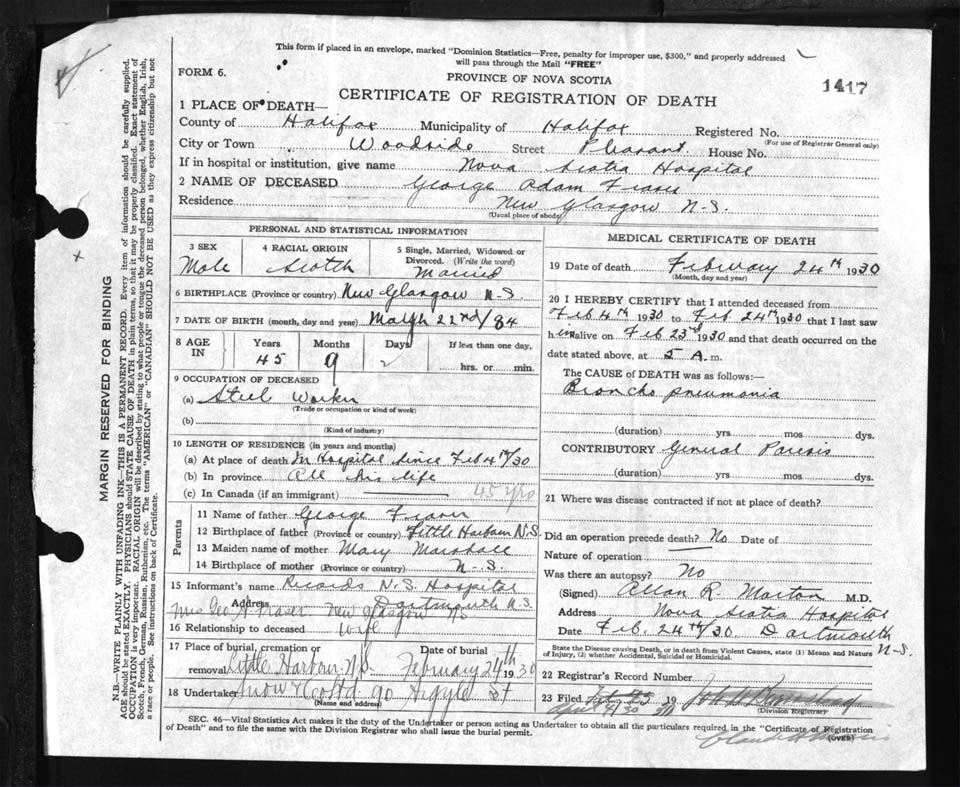 This form if placed in an envelope, marked "Dominion Statistics—Free, penalty for improper use, $300," and properly addressed
will pass through the Mail "FREE"
FORM 6.
PROVINCE OF NOVA SCOTIA
1417
CERTIFICATE OF REGISTRATION OF DEATH
1 PLACE OF DEATH—
County of Halifax Municipality of Halifax Registered No.
(For use of Registrar General only)
City or Town Woodside Street Pleasant House No.
If in hospital or institution, give name Nova Scotia Hospital
2 NAME OF DECEASED George Adam Fraser
Residence New Glasgow N-S.
(Usual place of abode)
PERSONAL AND STATISTICAL INFORMATION
3 SEX 4 RACIAL ORIGIN 5 Single, Married, Widowed or
Divorced. (Write the word)
Male Scotch Married
6 BIRTHPLACE (Province or country) New Glasgow N-S.
7 DATE OF BIRTH (month, day and year) 22nd/84
8 AGE IN Years Months Days If less than one day.
45 9 2 hrs. or min.
9 OCCUPATION OF DECEASED
(a) Steel Worker
(Trade or occupation or kind of work)
(b)
(Kind of industry)
10 LENGTH OF RESIDENCE (in years and months)
(a) At place of death In Hospital since Feb 4th/30
(b) In province All his life
(c) In Canada (if an immigrant) 45 yrs
Parents
11 Name of father George Fraser
12 Birthplace of father (Province or country) Little Harbour N.S.
13 Maiden name of mother Mary Marshall
14 Birthplace of mother (Province or country) N-S.
15 Informant's name Records N.S. Hospital
Address Dartmouth N.S.
Mrs Geo A Fraser New Glasgow NS
16 Relationship to deceased Wife
17 Place of burial, cremation or Date of burial
removal Little Harbour, N.S. February 24th 1930
18 Undertaker Snow & Co Ltd 90 Argyle St
(Name and address)
MEDICAL CERTIFICATE OF DEATH
19 Date of death February 24th 1930
(Month, day and year)
20 I HEREBY CERTIFY that I attended deceased from
Feb 4th 1930 to Feb. 24th 1930 that I last saw
him alive on Feb 23rd 1930 and that death occurred on the
date stated above, at 5 A.m.
The CAUSE of DEATH was as follows:—
Broncho pneumonia
(duration) yrs mos dys.
CONTRIBUTORY General Paresis
(duration) yrs mos dys.
21 Where was disease contracted if not at place of death?
Did an operation precede death? No Date of
Nature of operation
Was there an autopsy? No
(Signed) Allan R. Morton M.D.
Address Nova Scotia Hospital
Date Feb. 24th/30 Dartmouth
N-S.
State the Disease causing Death, or in death from Violent Causes, state (1) Means and Nature
of Injury, (2) whether Accidental, Suicidal or Homicidal.
22 Registrar's Record Number
23 Filed 19
(Division Registrar)
SEC. 46—Vital Statistics Act makes it the duty of the Undertaker or person acting as Undertaker to obtain all the particulars required in the "Certificate of Registration
of Death" and to file the same with the Division Registrar who shall issue the burial permit.
(OVER)
MARGIN RESERVED FOR BINDING
N.B.—WRITE PLAINLY WITH UNFADING INK—THIS IS A PERMANENT RECORD. Every item of information should be carefully supplied.
AGE should be stated EXACTLY. PHYSICIANS should STATE CAUSE OF DEATH in plain terms, so that it may be properly classified. Exact statement of
OCCUPATION is very important. RACIAL ORIGIN will be described by stating to what people or tongue the deceased person belonged, whether English, Irish,
Scotch, French, German, Russian, Ruthenian, etc. The terms "AMERICAN" or "CANADIAN" SHOULD NOT BE USED as they express citizenship but not
a race or people. See instructions on back of Certificate.